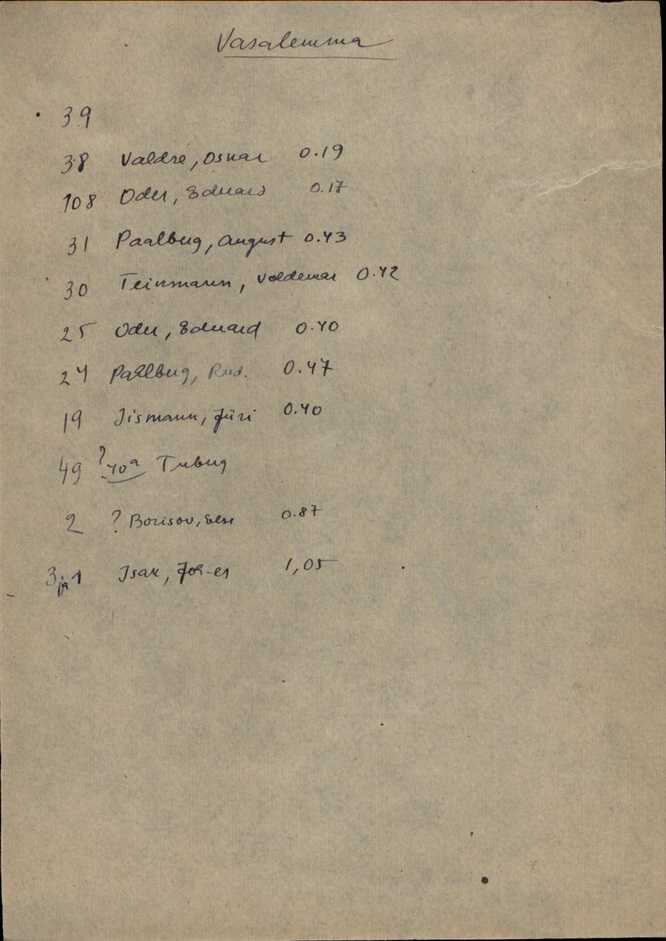 Vasalemma
39
38 Valdre, Oskar 0.19
108 Oder, Eduard 0.17
31 Paalberg, August 0.43
30 Teinmann, Voldemar 0.42
25 Oder, Eduard 0.40
24 Paalberg, Rud. 0.47
19 Jismann, Jüri 0.40
49 ? 40a
2 ? Borisov, 0.87
Isak, Joh-es 1,05